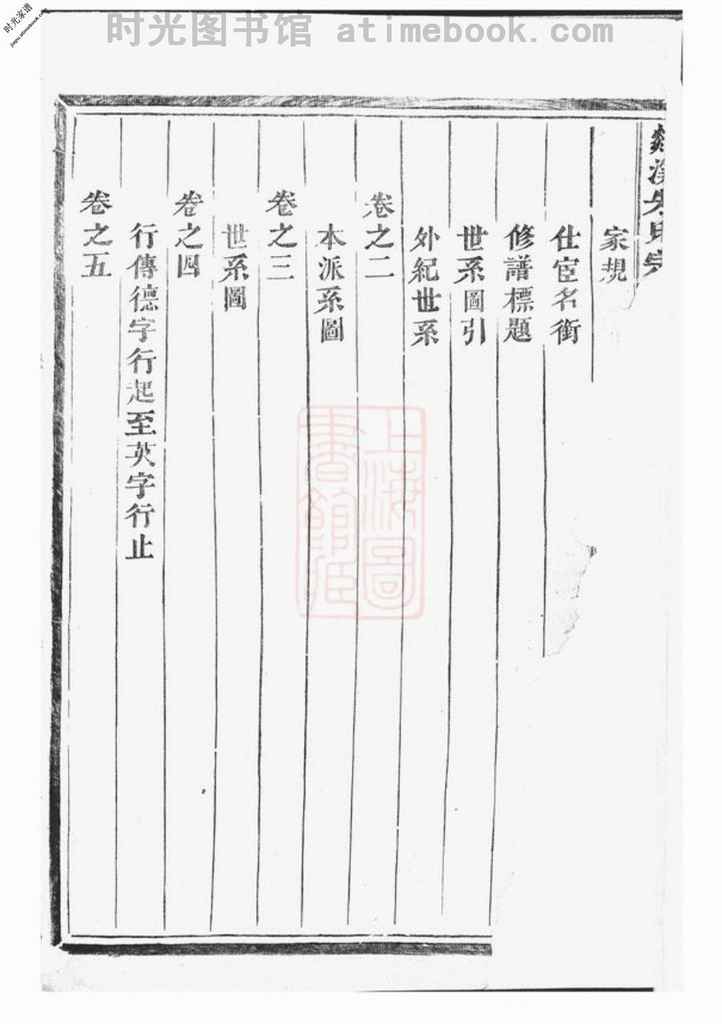 时光图书馆 atimebook.com
时光家谱
家規
仕宦名衔
修譜標題
世系圖引
外紀世系
卷之二
本派系圖
卷之三
世系圖
卷之四
行傳德字行起至英字行止
卷之五
上海圖
書館藏